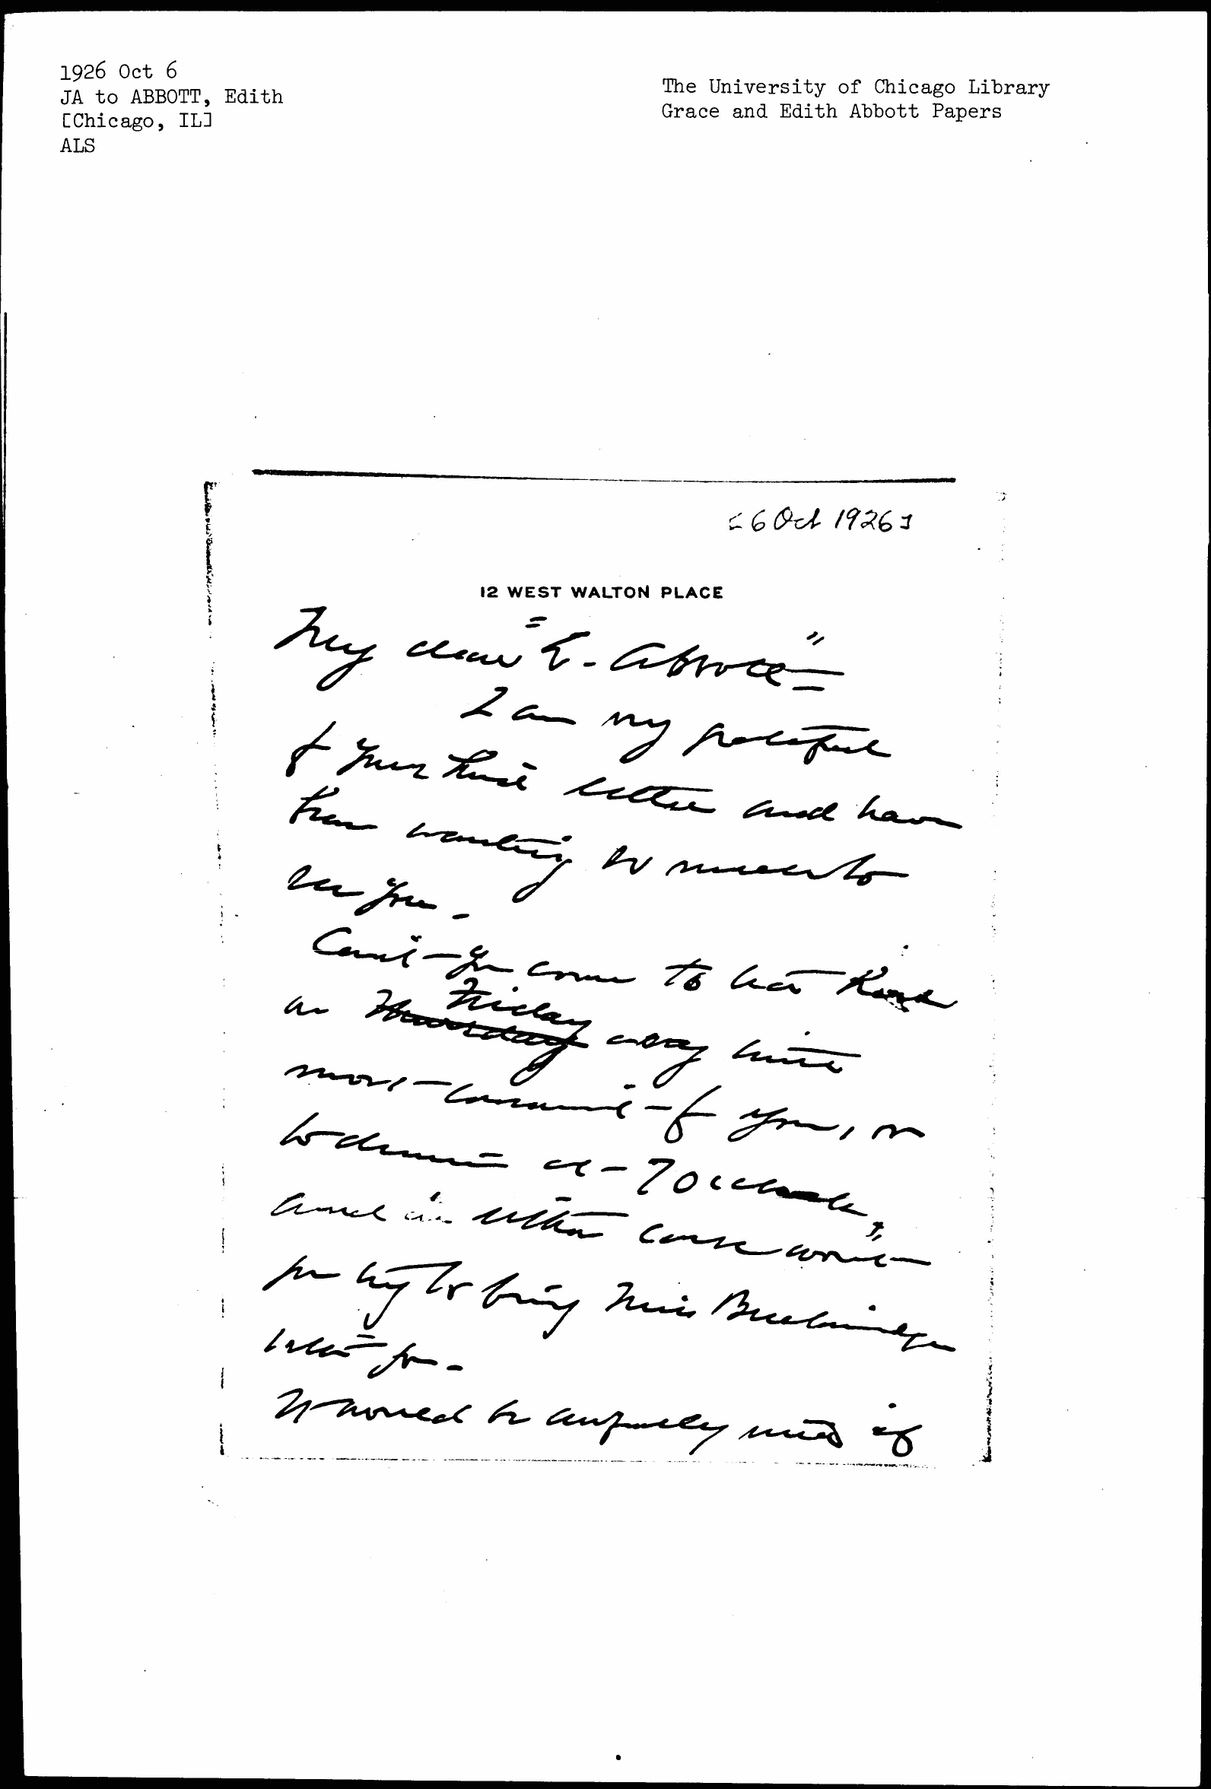 1926 Oct 6
JA to ABBOTT, Edith
[Chicago, IL]
ALS
The University of Chicago Library
Grace and Edith Abbott Papers
[6 Oct 1926]
12 WEST WALTON PLACE
My dear "E. Abbott" =
I am very grateful
for your kind letter and have
been wanting so much to
see you -
Can't you come to
on Thursday Friday any time
most convenient for you, or
to dinner at 7 O'clock,
and in either case won't
you try to bring Miss Breckinridge
with you -
It would be awfully nice if